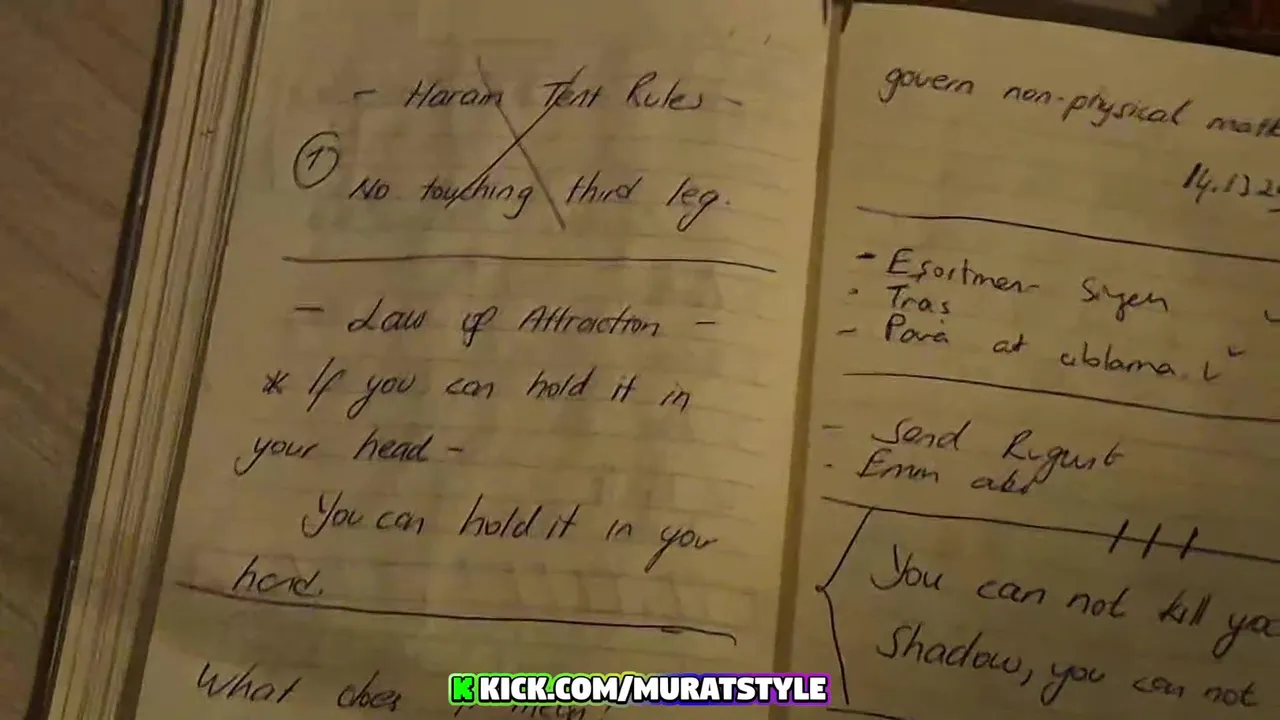 - Haram Tent Rules -
① No touching third leg.
- Law of Attraction -
* If you can hold it in
your head -
You can hold it in your
hand.
What does
govern non-physical
- Eşortmen
- Traş
- Para at ablama. ✓
- Send
- abi
You can not kill
Shadow, you can not
KICK.COM/MURATSTYLE